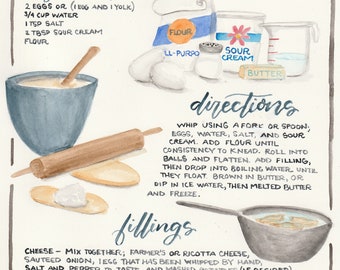 2 EGGS OR (1 EGG AND 1 YOLK)
3/4 CUP WATER
1 TSP SALT
2 TBSP SOUR CREAM
FLOUR
FLOUR
LL-PURPO
SOUR
CREAM
BUTTER
directions
WHIP USING A FORK OR SPOON,
EGGS, WATER, SALT, AND SOUR
CREAM. ADD FLOUR UNTIL
CONSISTENCY TO KNEAD. ROLL INTO
BALLS AND FLATTEN. ADD FILLING,
THEN DROP INTO BOILING WATER UNTIL
THEY FLOAT. BROWN IN BUTTER, OR
DIP IN ICE WATER, THEN MELTED BUTTER
AND FREEZE.
fillings
CHEESE - MIX TOGETHER; FARMER'S OR RICOTTA CHEESE,
SAUTEED ONION, 1 EGG THAT HAS BEEN WHIPPED BY HAND,
SALT AND PEPPER TO TASTE, AND MASHED